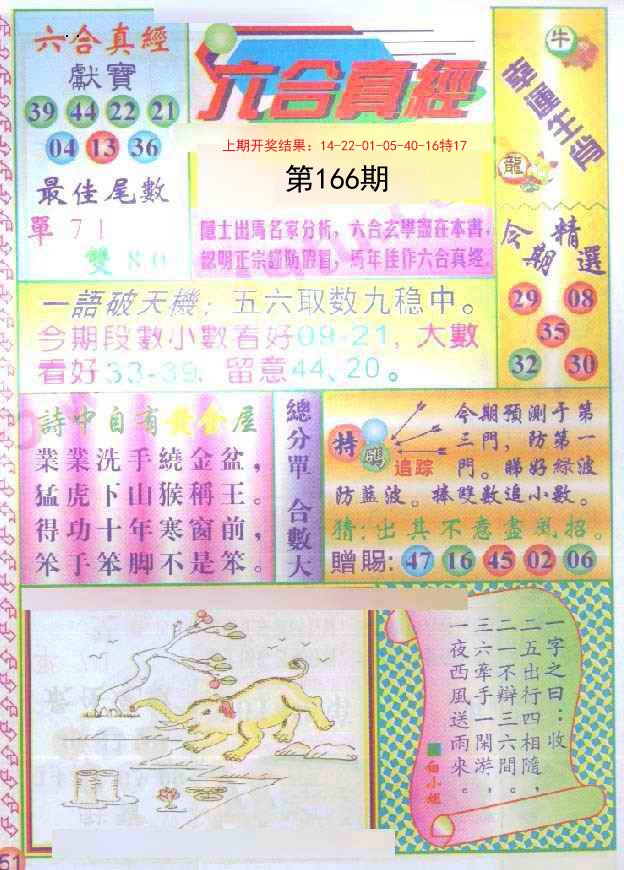 六合真經
獻寶
39 44 22 21
04 13 36
最佳尾數
單 71
雙 80
六合真經
上期开奖结果：14-22-01-05-40-16特17
第166期
隱士出馬名家分析，六合玄學盡在本書，
認明正宗謹防假冒，馬年佳作六合真經。
牛
幸運生肖
龍
今期精選
29 08
35
32 30
一語破天機：五六取数九稳中。
今期段數小數看好09-21，大數
看好33-39、留意44、20。
詩中自有黃金屋
業業洗手繞金盆，
猛虎下山猴稱王。
得功十年寒窗前，
笨手笨脚不是笨。
總分單 合數大
特碼
追踪
今期預測于第
三門，防第一
門。睇好綠波
防藍波。捧雙數追小數。
猜：出其不意盡風招。
贈賜：47 16 45 02 06
一字之曰：收
二五出行四相隨，
二一不辯三六間。
三六牽手一閑游，
一夜西風送雨來。
白小姐
51